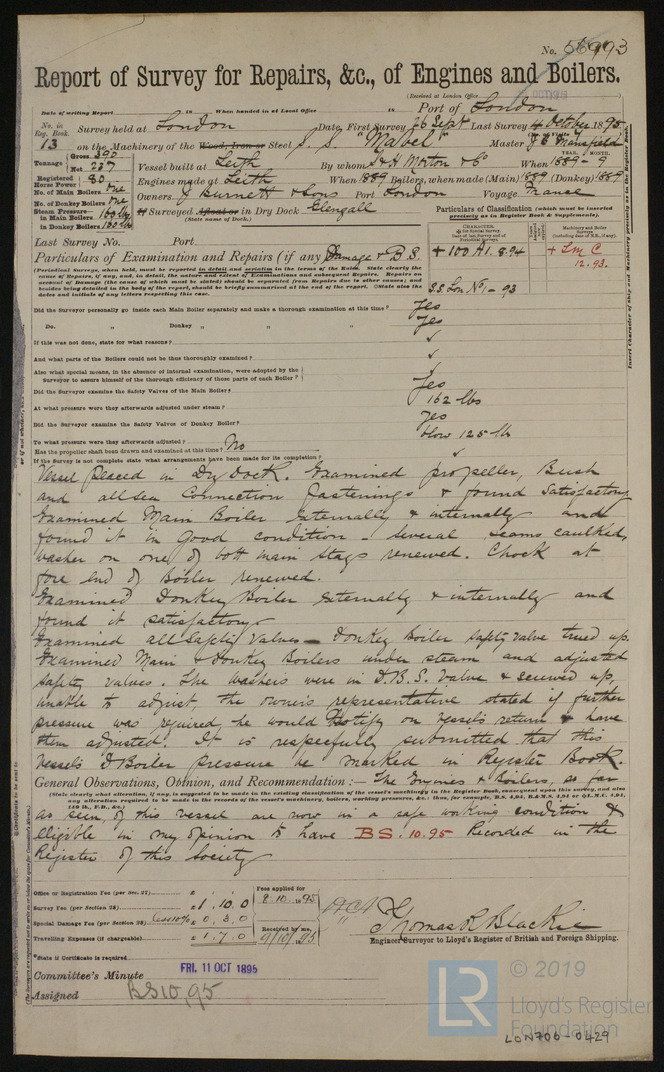 No. 56993
Report of Survey for Repairs, &c., of Engines and Boilers.
(Received at London Office
Date of writing Report 18 When handed in at Local Office 18 Port of London
No. in Reg. Book. 13
Survey held at London Date, First Survey 26 Sept Last Survey 4 October 1895
on the Machinery of the Wood, Iron or Steel S. S. "Mabel" Master J. E. Mansfield
Tonnage Gross 392 Net 227
Vessel built at Leith By whom S & H Morton & Co When 1889 - 9
Registered Horse Power 82
Engines made at Leith When 1889 Boilers, when made (Main) 1889 (Donkey) 1889
No. of Main Boilers One
Owners J Burnett & Sons Port London Voyage France
No. of Donkey Boilers One
Steam Pressure in Main Boilers 160 lbs
in Donkey Boilers
If Surveyed Afloat or in Dry Dock Glengall
(State name of Dock.)
Particulars of Classification (which must be inserted precisely as in Register Book & Supplements).
CHARACTER.
Machinery and Boiler Surveys
+ 100 A1. 8.94
+ L m C 12.93.
SS Lon No 1 - 93
Last Survey No. Port
Particulars of Examination and Repairs (if any) Damage & B.S.
(Periodical Surveys, when held, must be reported in detail and seriatim in the terms of the Rules. State clearly the cause of Repairs, if any, and, in detail, the nature and extent of Examinations and subsequent Repairs. Repairs on account of Damage (the cause of which must be stated) should be separated from Repairs due to other causes; and besides being detailed in the body of the report, should be briefly summarised at the end of the report. State also the dates and initials of any letters respecting this case.
Did the Surveyor personally go inside each Main Boiler separately and make a thorough examination at this time? Yes
Do. " Donkey " " " Yes
If this was not done, state for what reasons? ✓
And what parts of the Boilers could not be thus thoroughly examined? ✓
Also what special means, in the absence of internal examination, were adopted by the Surveyor to assure himself of the thorough efficiency of those parts of each Boiler? ✓
Did the Surveyor examine the Safety Valves of the Main Boiler? Yes
At what pressure were they afterwards adjusted under steam? 162 lbs
Did the Surveyor examine the Safety Valves of Donkey Boiler? Yes
To what pressure were they afterwards adjusted? blow 125 lb
Has the propeller shaft been drawn and examined at this time? No
If the Survey is not complete state what arrangements have been made for its completion? ✓
Vessel placed in Dry Dock. Examined propeller, Bush
and all sea Connection fastenings & found satisfactory
Examined Main Boiler externally & internally and
found it in Good condition - several seams caulked,
washer on one of bott main stays renewed. Chock at
fore end of Boiler renewed.
Examined Donkey Boiler externally & internally and
found it satisfactory
Examined all Safety Valves - Donkey Boiler safety valve trued up.
Examined Main & Donkey Boilers under steam and adjusted
safety valves. The washers were in D.B.S. Valve & screwed up,
unable to adjust, the owner's representative stated if further
pressure was required he would Notify on vessel's return & have
them adjusted. It is respectfully submitted that this
vessel's D Boiler pressure be marked in Register Book.
General Observations, Opinion, and Recommendation:— The Engines & Boilers, as far
(State clearly what alteration, if any, is suggested to be made in the existing classification of the vessel's machinery in the Register Book, consequent upon this survey, and also any alteration required to be made in the records of the vessel's machinery, boilers, working pressures, &c.: thus, for example,
as seen, of this vessel are now in a safe working condition &
eligible in my opinion to have BS. 10.95 Recorded in the
Register of this Society
Office or Registration Fee (per Sec. 27) £ : :
Survey Fee (per Section 28) £ 1 . 10 . 0
Special Damage Fee (per Section 28) Less 10% £ 0 . 3 . 0
Travelling Expenses (if chargeable) £ 1 . 7 . 0
Fees applied for 8.10.1895
Received by me, 9/10/95
Thomas R Blackie
Engineer Surveyor to Lloyd's Register of British and Foreign Shipping.
*State if Certificate is required
Committee's Minute FRI. 11 OCT 1895
Assigned BS 10,95
LR © 2019
Lloyd's Register
Foundation
LON700-0429